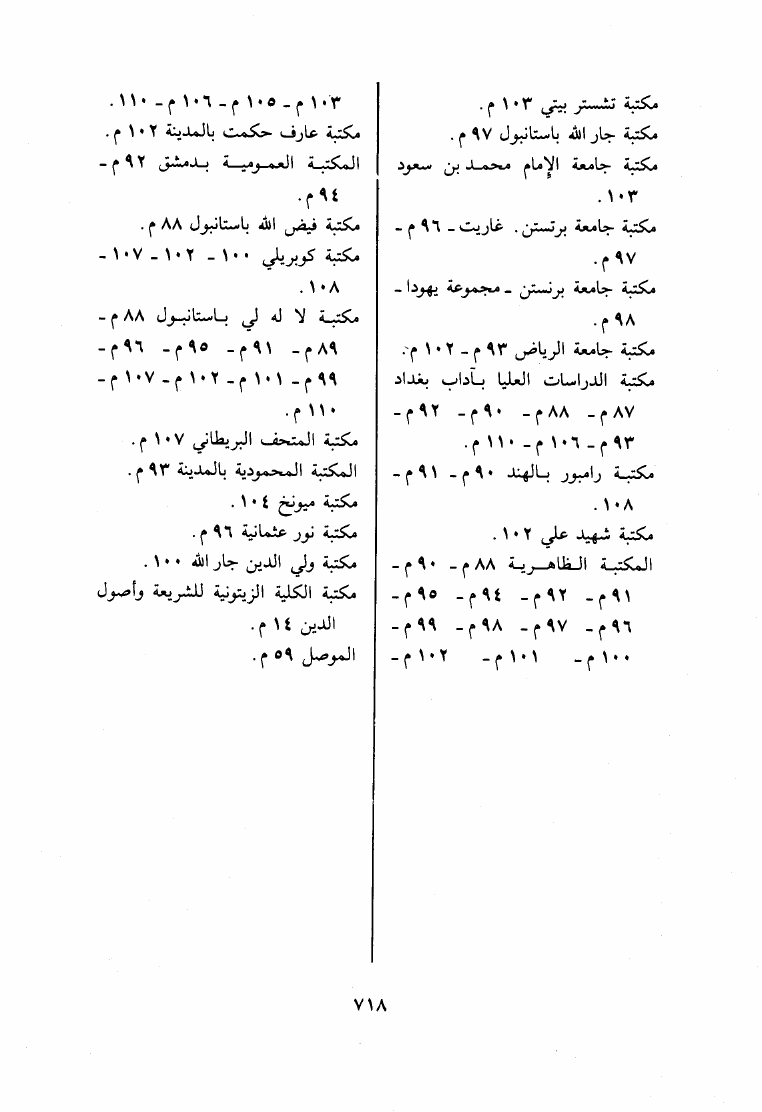 مكتبة تشستر بيتي ١٠٣ م.
مكتبة جار الله باستانبول ٩٧ م.
مكتبة جامعة الإمام محمد بن سعود
١٠٣.
مكتبة جامعة برتستن. غاريت ـ ٩٦ م ـ
٩٧ م.
مكتبة جامعة برنستن ـ مجموعة يهودا ـ
٩٨ م.
مكتبة جامعة الرياض ٩٣ م ـ ١٠٢ م.
مكتبة الدراسات العليا بآداب بغداد
٨٧ م ـ ٨٨ م ـ ٩٠ م ـ ٩٢ م ـ
٩٣ م ـ ١٠٦ م ـ ١١٠ م.
مكتبة رامبور بالهند ٩٠ م ـ ٩١ م ـ
١٠٨.
مكتبة شهيد علي ١٠٢.
المكتبة الظاهرية ٨٨ م ـ ٩٠ م ـ
٩١ م ـ ٩٢ م ـ ٩٤ م ـ ٩٥ م ـ
٩٦ م ـ ٩٧ م ـ ٩٨ م ـ ٩٩ م ـ
١٠٠ م ـ ١٠١ م ـ ١٠٢ م ـ
١٠٣ م ـ ١٠٥ م ـ ١٠٦ م ـ ١١٠.
مكتبة عارف حكمت بالمدينة ١٠٢ م.
المكتبة العمومية بدمشق ٩٢ م ـ
٩٤ م.
مكتبة فيض الله باستانبول ٨٨ م.
مكتبة كوبريلي ١٠٠ ـ ١٠٢ ـ ١٠٧ ـ
١٠٨.
مكتبة لا له لي باستانبول ٨٨ م ـ
٨٩ م ـ ٩١ م ـ ٩٥ م ـ ٩٦ م ـ
٩٩ م ـ ١٠١ م ـ ١٠٢ م ـ ١٠٧ م ـ
١١٠ م.
مكتبة المتحف البريطاني ١٠٧ م.
المكتبة المحمودية بالمدينة ٩٣ م.
مكتبة ميونخ ١٠٤.
مكتبة نور عثمانية ٩٦ م.
مكتبة ولي الدين جار الله ١٠٠.
مكتبة الكلية الزيتونية للشريعة وأصول
الدين ١٤ م.
الموصل ٥٩ م.
٧١٨